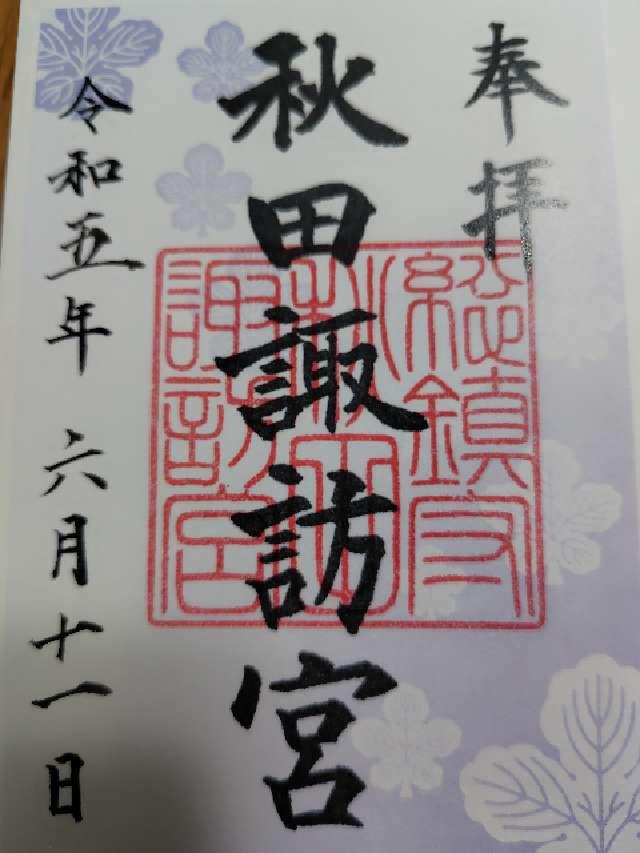 奉拝
秋田諏訪宮
総鎮守
秋田
諏訪宮
令和五年 六月十一日